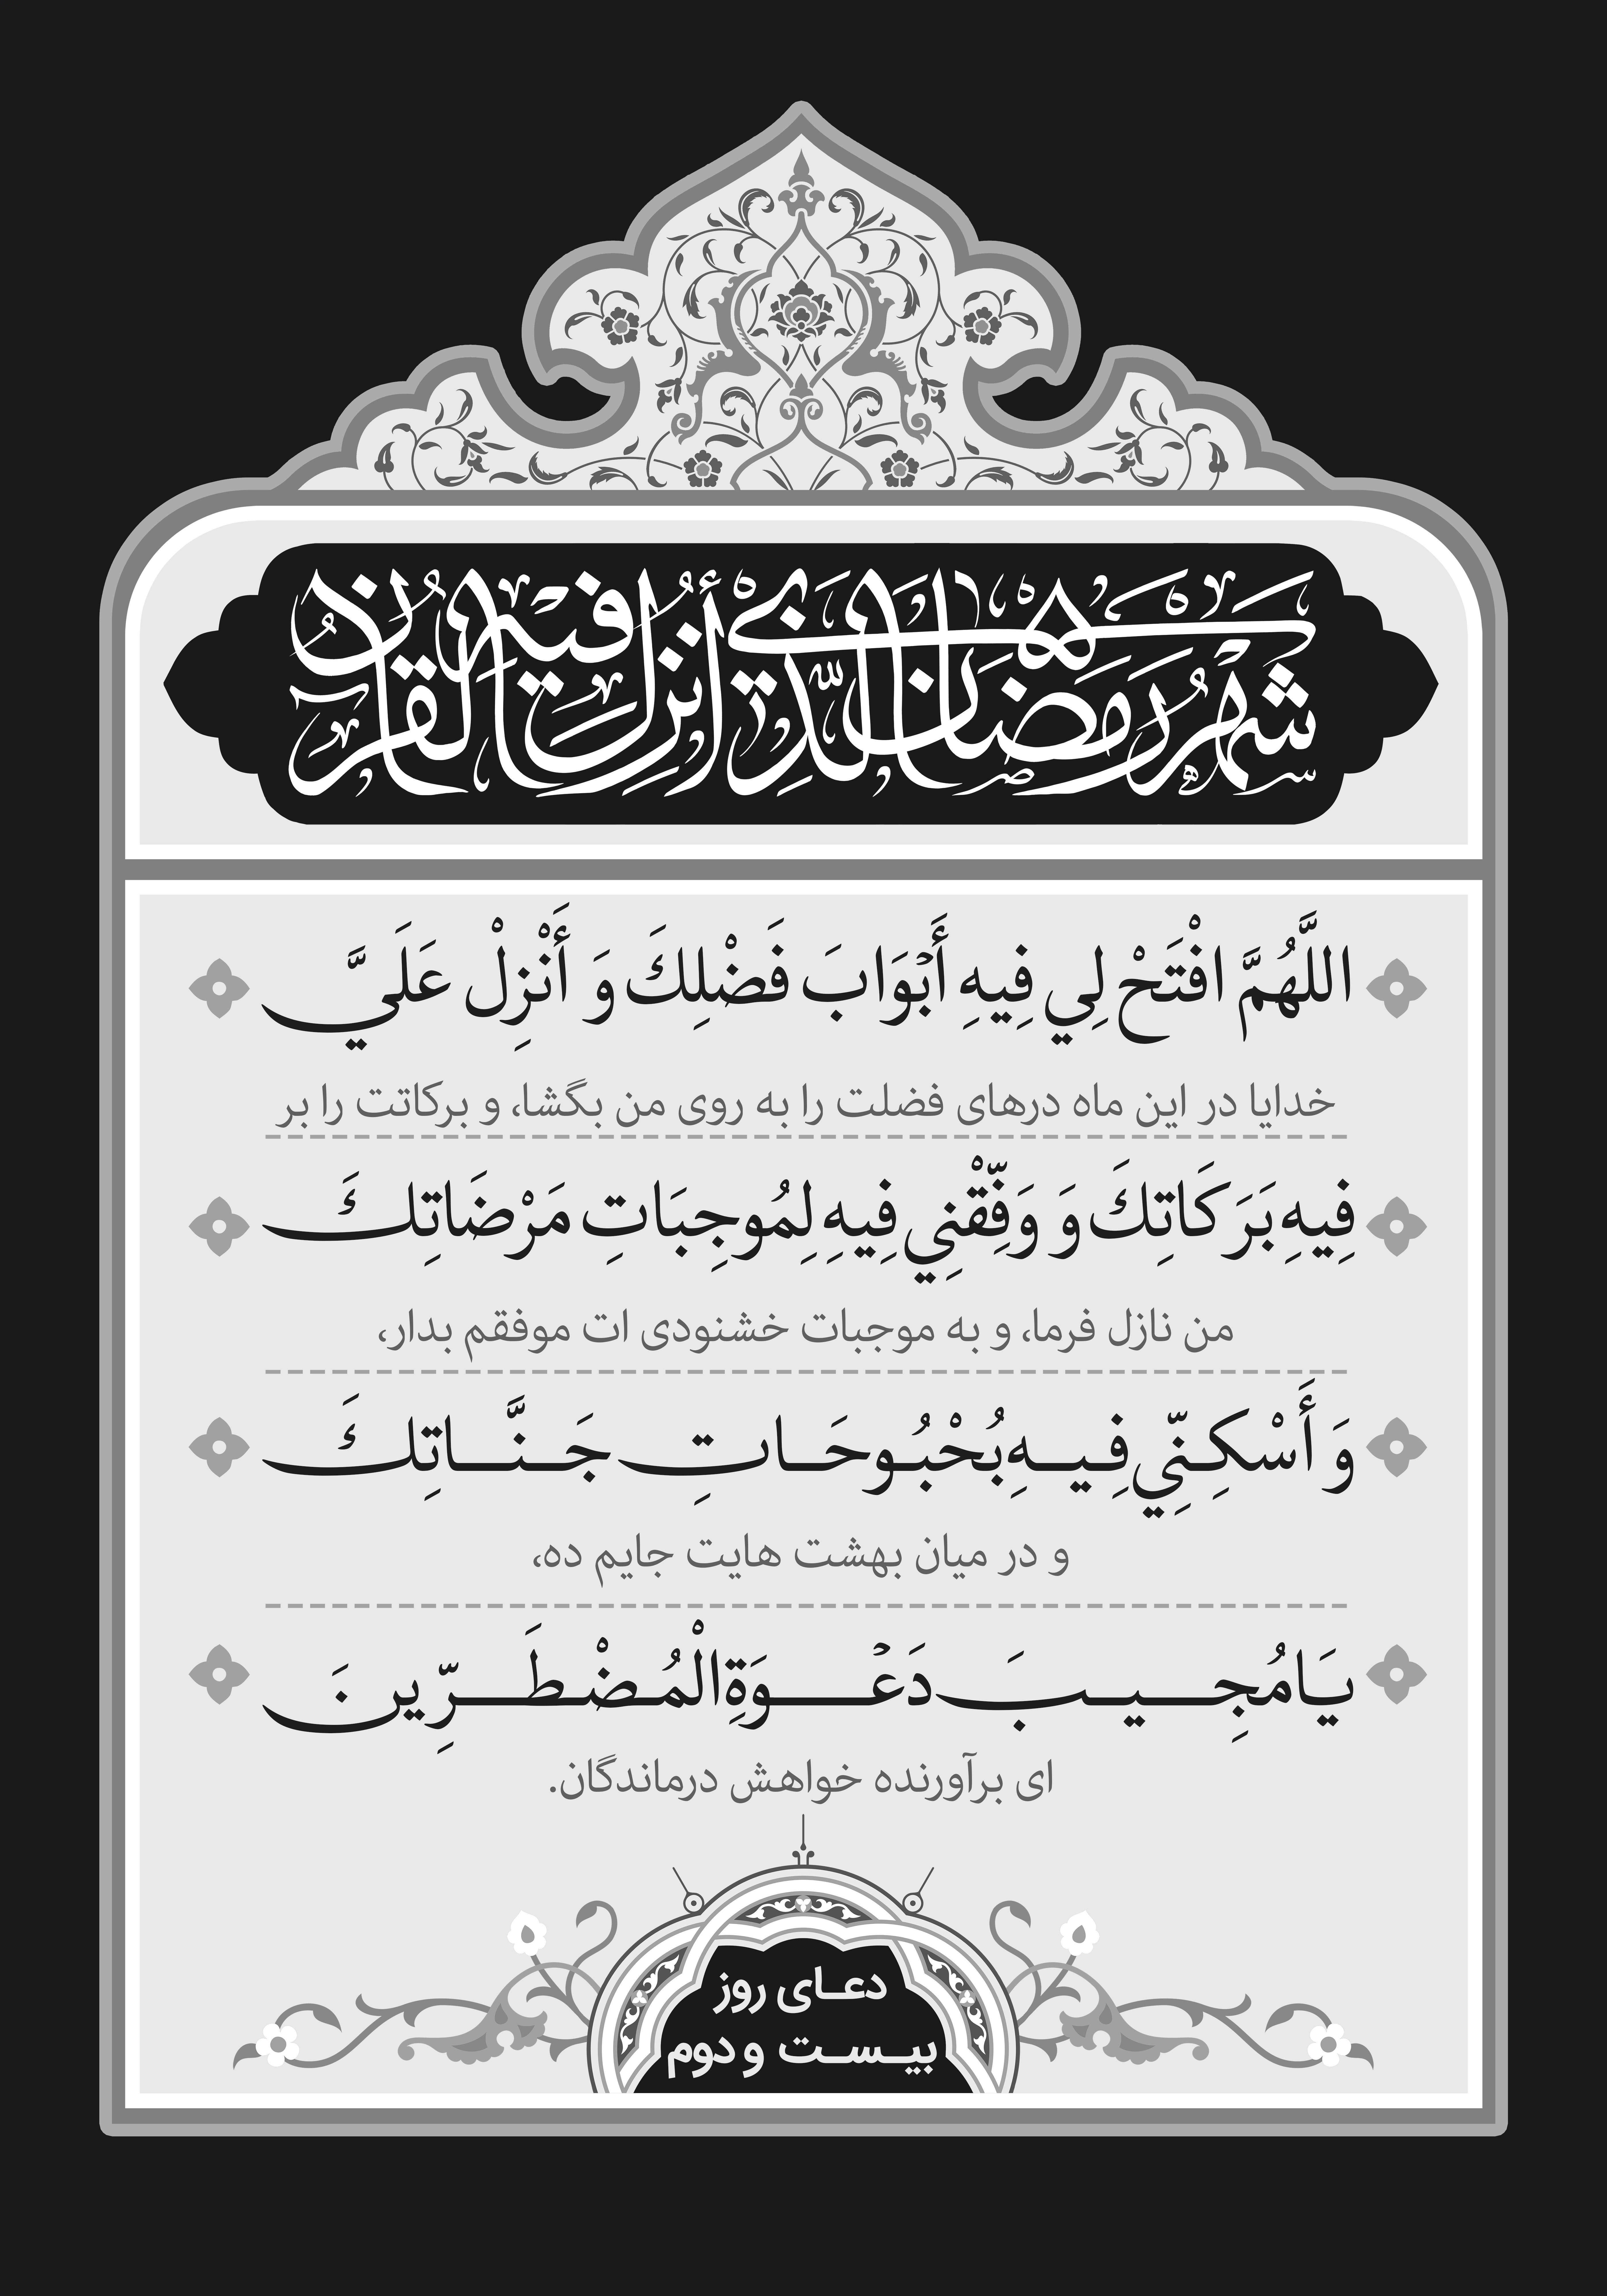 شهر رمضان الذي أنزل فيه القرآن
اللَّهُمَّ افْتَحْ لِي فِيهِ أَبْوَابَ فَضْلِكَ وَ أَنْزِلْ عَلَيَّ
خدایا در این ماه درهای فضلت را به روی من بگشا، و برکاتت را بر
فِيهِ بَرَكَاتِكَ وَ وَفِّقْنِي فِيهِ لِمُوجِبَاتِ مَرْضَاتِكَ
من نازل فرما، و به موجبات خشنودی ات موفقم بدار،
وَ أَسْكِنِّي فِيهِ بُحْبُوحَاتِ جَنَّاتِكَ
و در میان بهشت هایت جایم ده،
يَا مُجِيبَ دَعْوَةِ الْمُضْطَرِّينَ
ای برآورنده خواهش درماندگان.
دعای روز
بیست و دوم